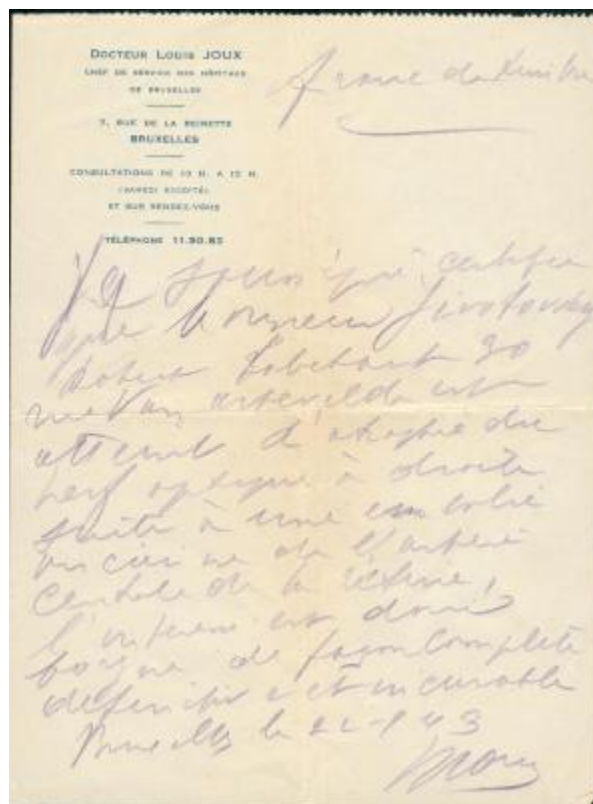 DOCTEUR LOUIS JOUX
CHEF DE SERVICE DES HÔPITAUX
DE BRUXELLES
RUE DE LA REINETTE
BRUXELLES
CONSULTATIONS DE 10 H. A 12 H.
(SAMEDI EXCEPTÉ)
ET SUR RENDEZ-VOUS
TÉLÉPHONE 11.90.82
Je soussigné, certifie
que Monsieur Jivotovsky
Robert habitant 30
rue Van Artevelde est
atteint d'atrophie du
nerf optique à droite
suite à une embolie
ancienne de l'artère
centrale de la rétine,
l'intéressé est donc
borgne de façon complète
définitive et incurable
Bruxelles le